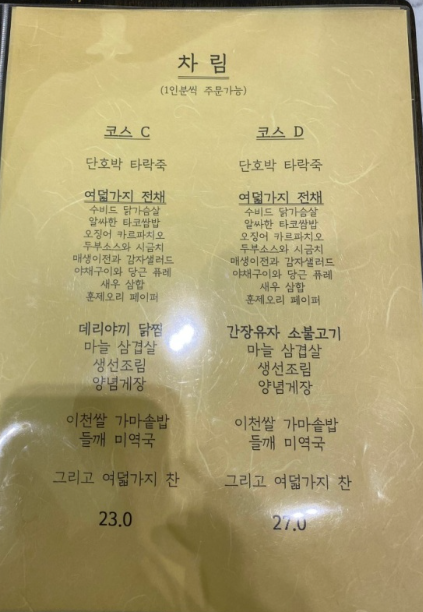 차 림
(1인분씩 주문가능)
코스 C
단호박 타락죽
여덟가지 전채
수비드 닭가슴살
알싸한 타코쌈밥
오징어 카르파치오
두부소스와 시금치
매생이전과 감자샐러드
야채구이와 당근 퓨레
새우 삼합
훈제오리 페이퍼
데리야끼 닭찜
마늘 삼겹살
생선조림
양념게장
이천쌀 가마솥밥
들깨 미역국
그리고 여덟가지 찬
23.0
코스 D
단호박 타락죽
여덟가지 전채
수비드 닭가슴살
알싸한 타코쌈밥
오징어 카르파치오
두부소스와 시금치
매생이전과 감자샐러드
야채구이와 당근 퓨레
새우 삼합
훈제오리 페이퍼
간장유자 소불고기
마늘 삼겹살
생선조림
양념게장
이천쌀 가마솥밥
들깨 미역국
그리고 여덟가지 찬
27.0